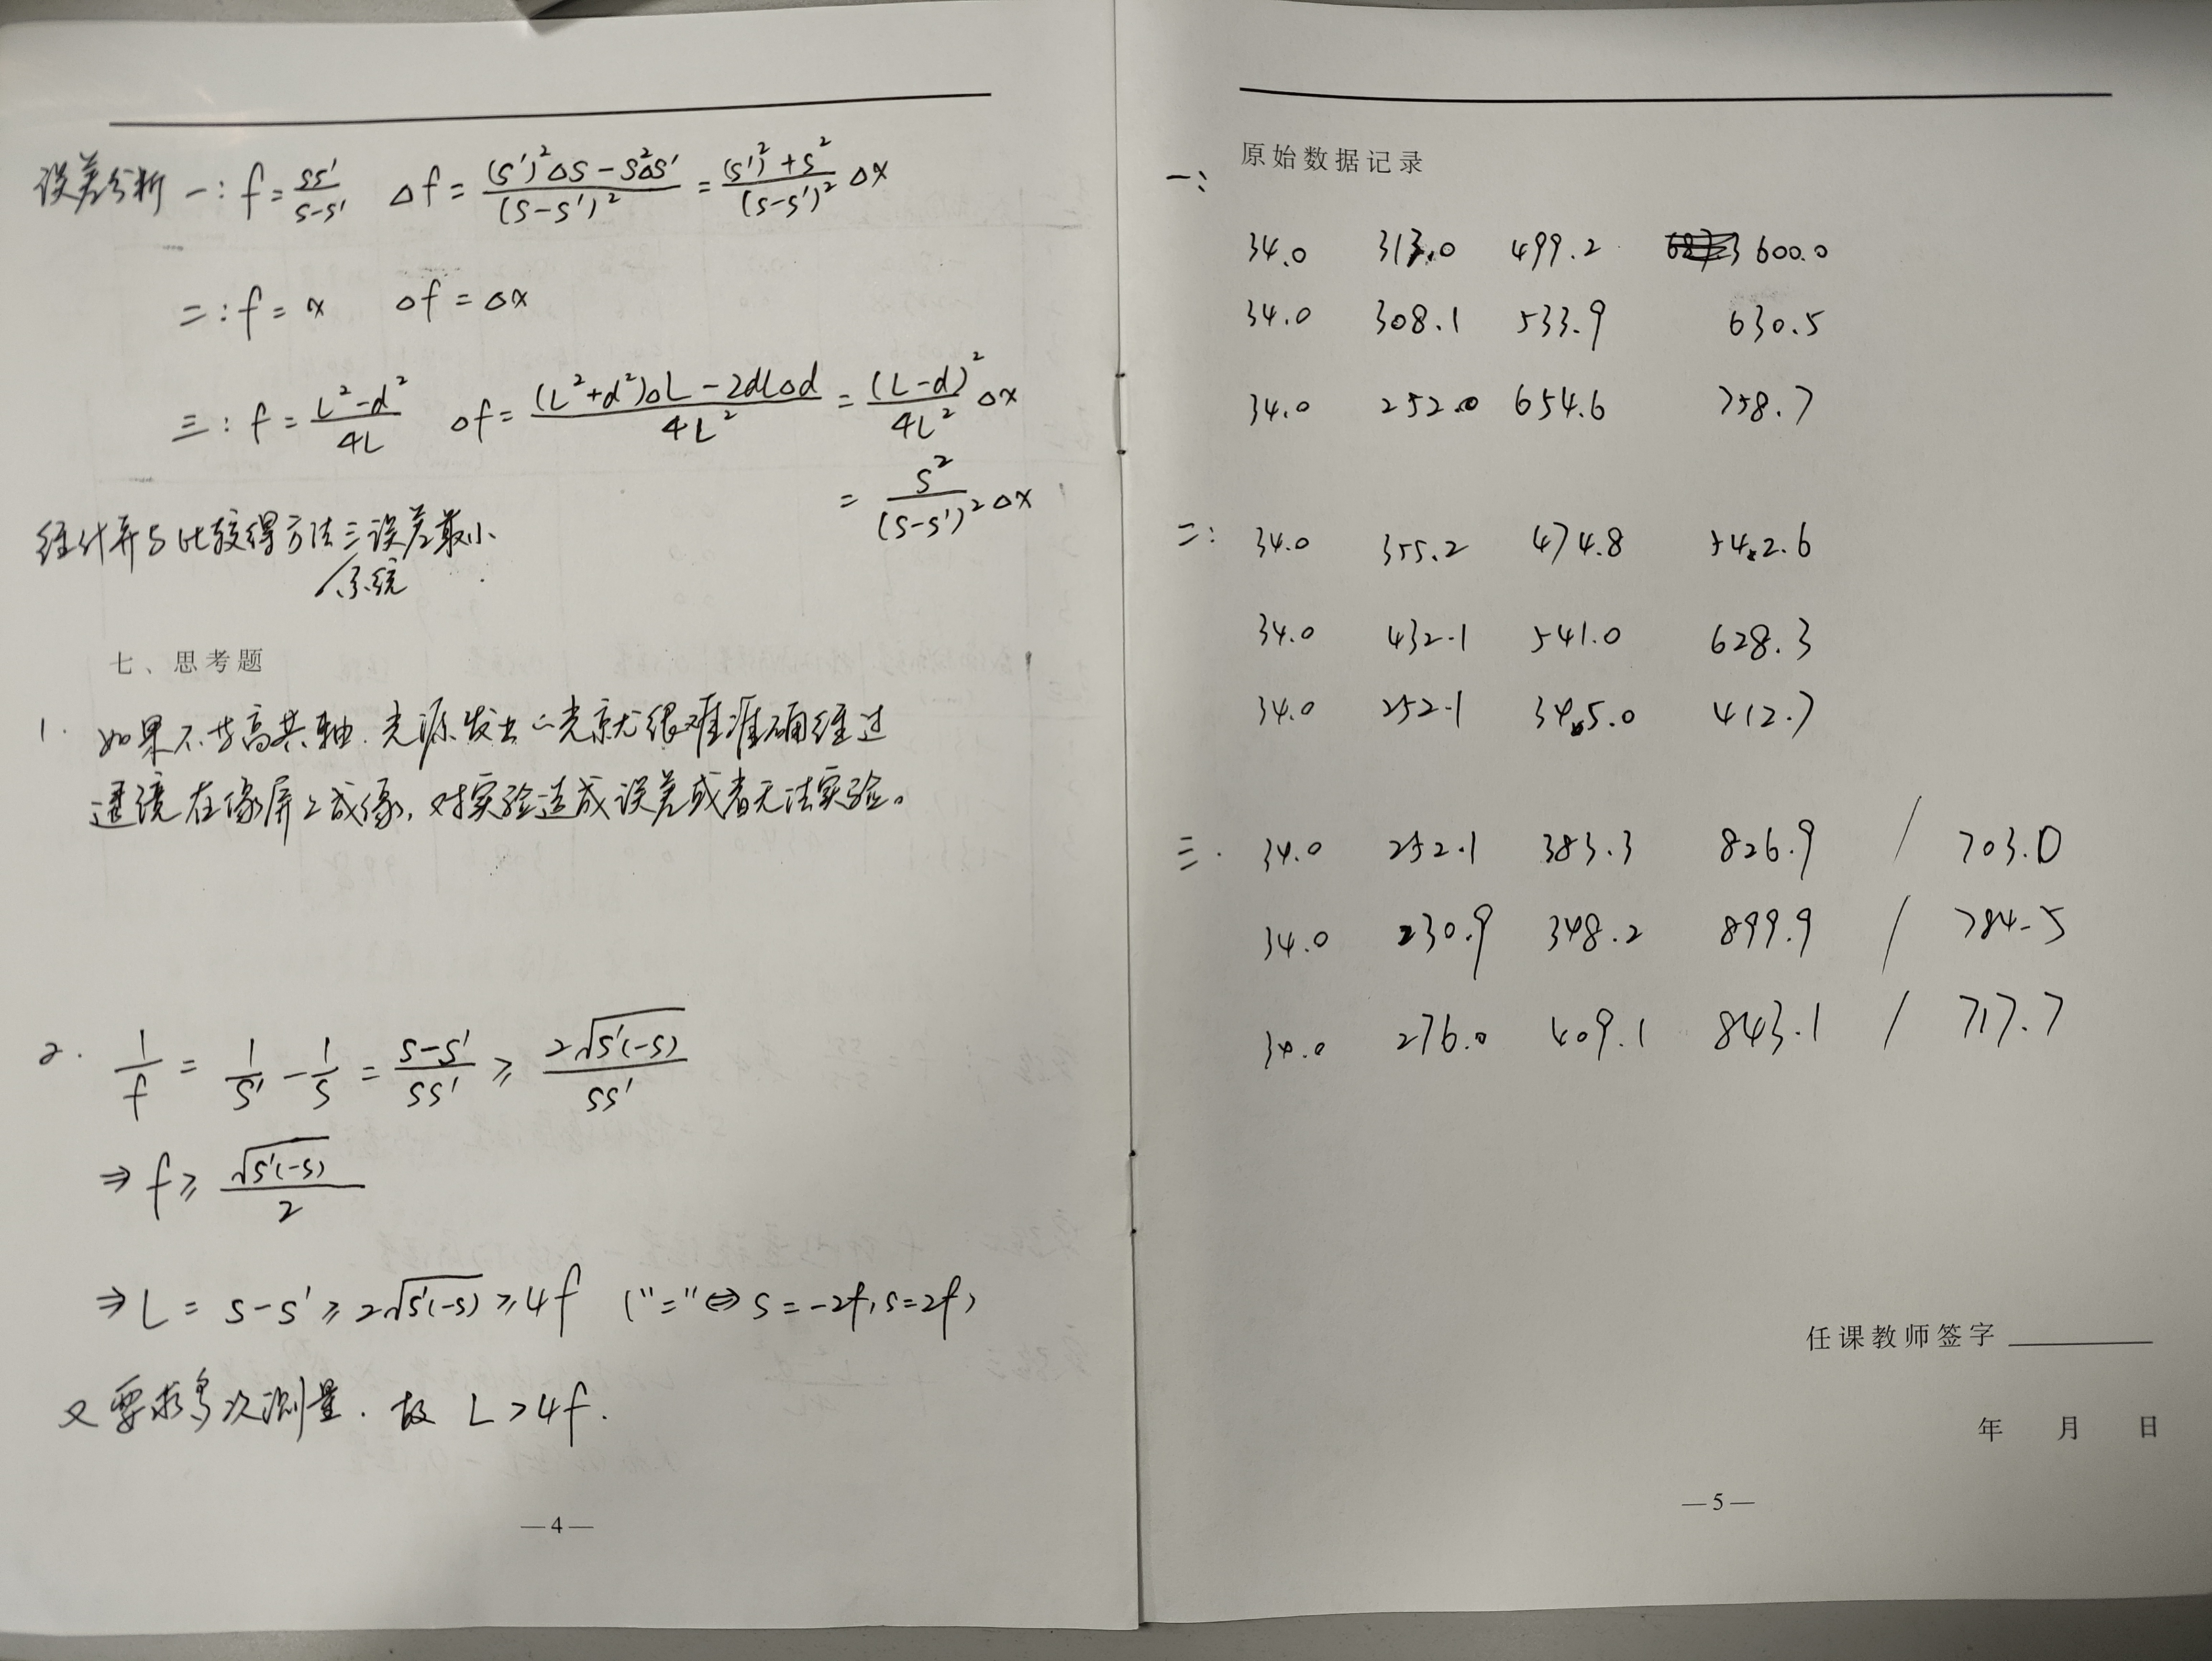 误差分析 一: f = ss'/(s-s')  Δf = ((s')²Δs - s²Δs')/(s-s')² = ((s')²+s²)/(s-s')² Δx
二: f = x  Δf = Δx
三: f = (L²-d²)/4L  Δf = ((L²+d²)ΔL - 2dLΔd)/4L² = (L-d)²/4L² Δx
= s²/(s-s')² Δx
经计算与比较得方法三系统误差最小
七、思考题
1. 如果不等高共轴.光源发出的光就很难准确经过
透镜在像屏上成像,对实验造成误差或者无法实验。
2. 1/f = 1/s' - 1/s = (s-s')/ss' ≥ 2√(s'(-s))/ss'
⇒ f ≥ √(s'(-s))/2
⇒ L = s-s' ≥ 2√(s'(-s)) ≥ 4f ("=" ⇔ s=-2f, s=2f)
又要求多次测量.故 L>4f.
—4—
原始数据记录
一:
34.0 313.0 499.2 600.0
34.0 308.1 533.9 630.5
34.0 252.0 654.6 758.7
二: 34.0 355.2 474.8 542.6
34.0 432.1 541.0 628.3
34.0 252.1 345.0 412.7
三. 34.0 252.1 383.3 826.9 / 703.0
34.0 230.9 348.2 899.9 / 784.5
34.0 276.0 409.1 843.1 / 717.7
任课教师签字
年 月 日
—5—